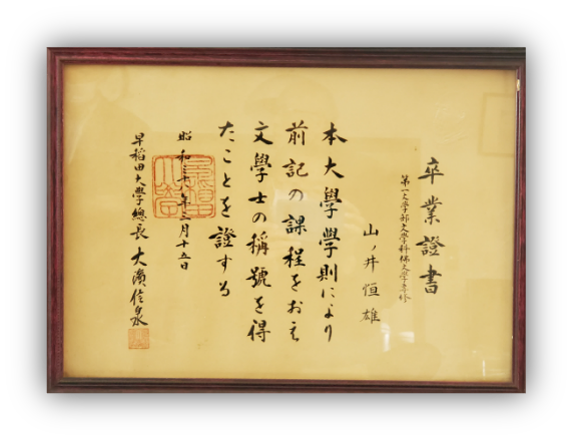 卒業證書
第一文学部文学科佛文学専修
山ノ井恒雄
本大學學則により
前記の課程をおえ
文學士の稱號を得
たことを證する
昭和三十年三月十五日
早稲田大學總長 大濱信泉